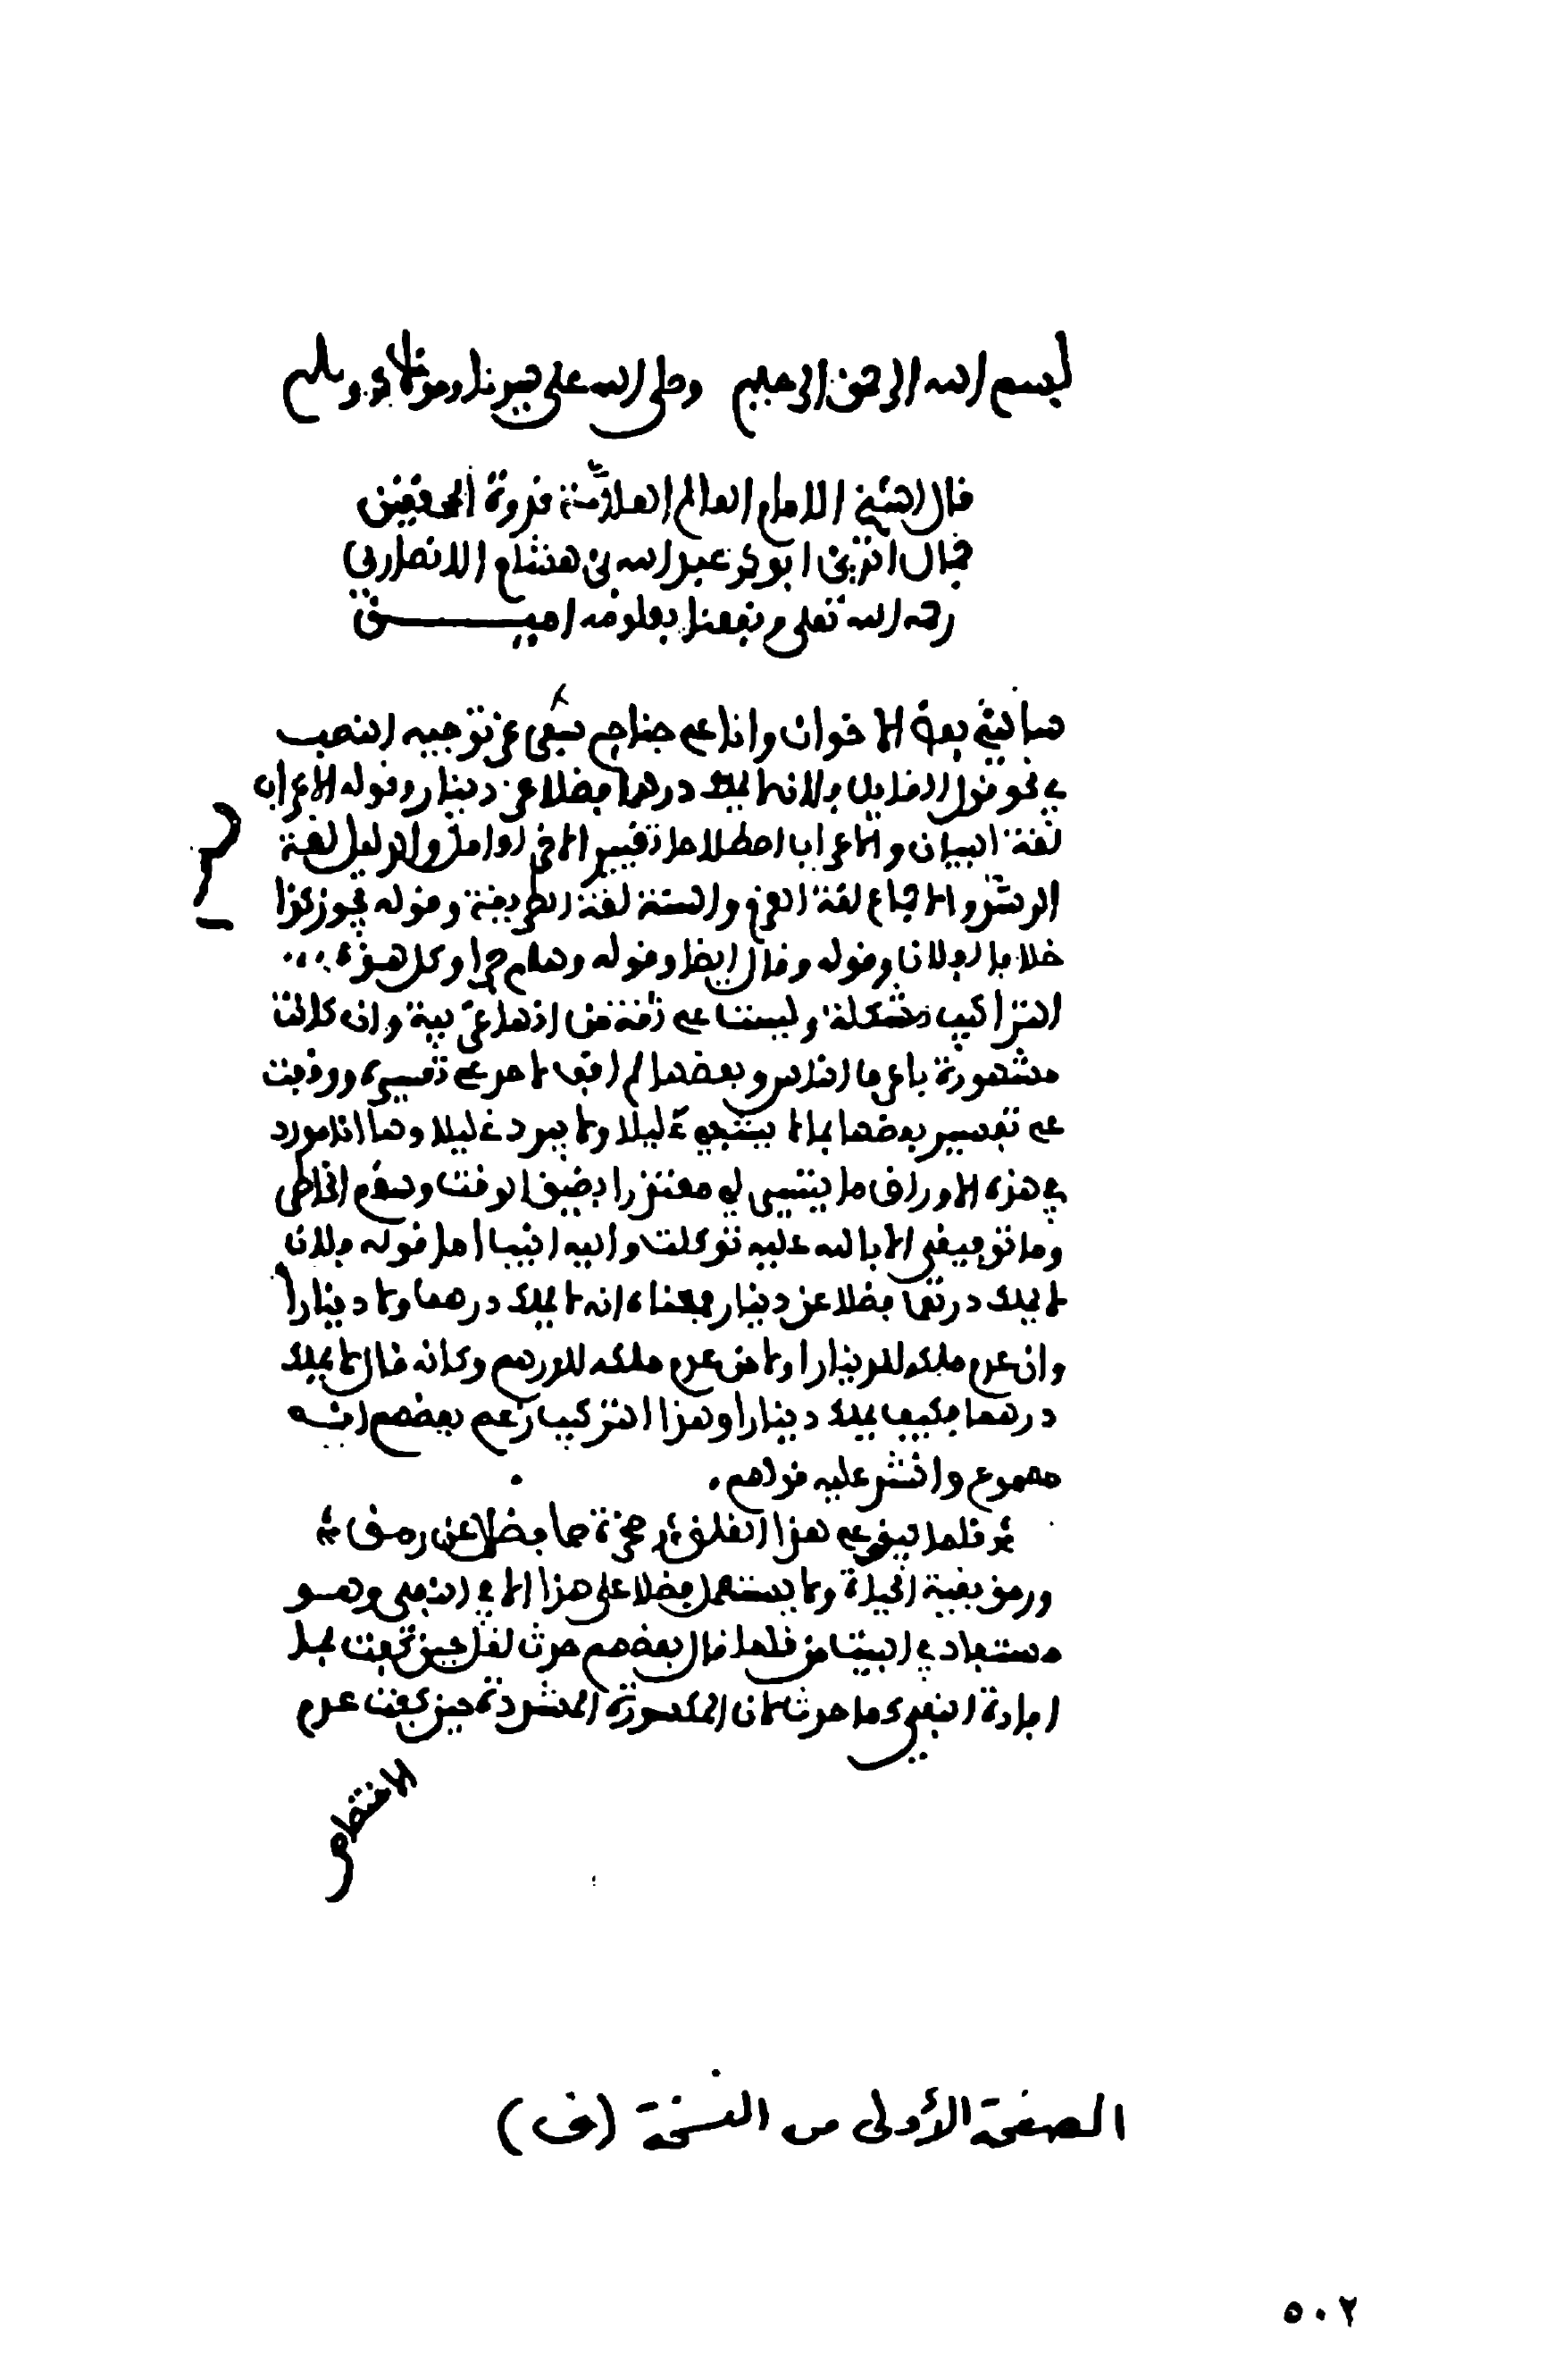 بسم الله الرحمن الرحيم وصلى الله على سيدنا ومولانا وسلم
قال الشيخ الامام العالم العلامة قدوة المحققين
جمال الدين ابو عبد الله بن هشام الانصاري
رحمه الله تعلى ونفعنا بعلومه امين
سألني بعض الاخوان وانا على جناح سفر عن توجيه النصب
في نحو قول القايل فلان لا يملك درهما فضلا عن دينار وقوله الاعراب
لغة البيان والاعراب اصطلاحا تغيير الاخر لعوامل والدليل لغة
المرشد والاجماع لغة العزم والسنة لغة الطريقة وقوله يجوز كذا
خلافا لفلان وقوله وقال ايضا وقوله وهلم جرا وكل هذه
التراكيب مشكلة وليست على ثقة من انها عربية وان كانت
مشهورة في عرف الناس وبعضها لم اقف لاحد على تفسيره ووقفت
على تفسير بعضها بما لا يشفي عليلا ولا يبرد غليلا وها انا مورد
في هذه الاوراق ما تيسر لي معتذرا بضيق الوقت وسقم الخاطر
وما توفيقي الا بالله عليه توكلت واليه انيب اما قوله فلان
لا يملك درهما فضلا عن دينار فمعناه انه لا يملك درهما ولا دينارا
وان عدم ملكه للدينار اولا من عدم ملكه للدرهم وكانه قال لا يملك
درهما فكيف يملك دينارا وهذا التركيب زعم بعضهم انه
مسموع وانشد عليه قولهم
قلما يبقى على هذا القلق صخرة صما فضلا عن رمق
ورمق بقية الحياة ولا يستعمل فضلا على هذا الا في النفي وهو
مستفاد في البيت من قلما قال بعضهم حدث لقل حين كفت بما
افادة النفي كما حدث لان المكسورة المشددة حين كفت عدم
الاختصاص
الصفحة الأولى من النسخة (ف)
٥٠٢